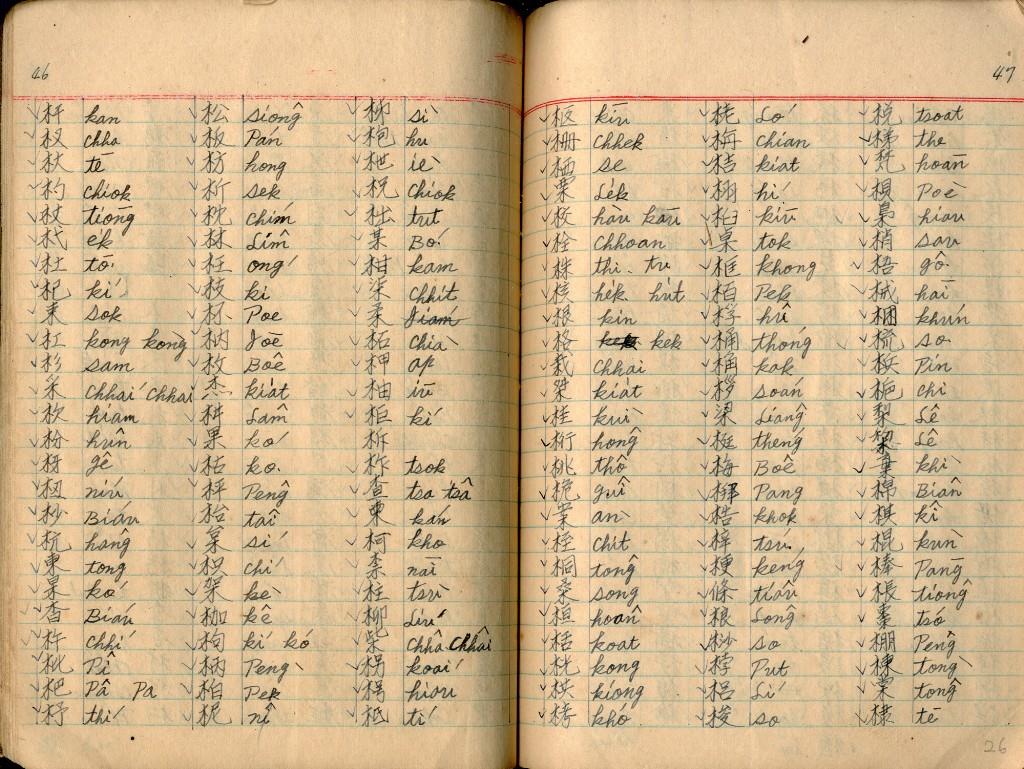 46
杆 kan
杈 chha
杕 tē
杓 chiok
杖 tiōng
杙 e̍k
杜 tō͘
杞 kí
束 sok
杠 kong kòng
杉 sam
采 Chhái Chhài
杴 hiam
枌 hûn
枒 gê
杻 niú
杪 Biáu
杭 hâng
東 tong
杲 kó
杳 Biáu
杵 chhí
枇 Pî
杷 Pâ Pa
杼 thí
松 siông
板 Pán
枋 hong
析 sek
枕 chím
林 Lîm
枉 óng
枝 ki
杯 Poe
枘 Joē
枚 Boê
杰 kia̍t
枏 Lâm
果 kó
枯 ko͘
枰 Pêng
枱 tai
枲 sí
枳 chí
架 kè
枷 kê
枸 kí kó
柄 Pèng
柏 Pek
柅 nî
柳 sì
枹 hu
枻 iē
柷 chiok
柮 tut
某 Bó͘
柑 kam
柒 chhit
柔 Jiám
柘 Chià
柙 ap
柚 iū
柜 kí
柝
柞 tso̍k
查 tsa tsâ
柬 kán
柯 kho
柰 nāi
柱 tsū
柳 Liú
柴 Chhâ Chhâi
柺 koái
枵 hiau
柢 tí
47
柩 kiū
柵 chhek
栖 se
栗 Le̍k
校 hāu kāu
栓 chhoan
株 thi. tu
核 he̍k hu̍t
根 kin
格 kek
栽 Chhai
桀 kia̍t
桂 kuì
桁 hông
桃 thô
桅 guî
案 àn
桎 chit
桐 tông
桑 song
桓 hoân
栝 koat
桄 kong
栱 kióng
栲 khó
栳 Ló
栴 chian
桔 kiat
栩 hí
桕 kiū
桌 tok
框 khong
栢 Pek
桴 hû
桶 thóng
桷 kak
桫 soán
梁 Liâng
梃 théng
梅 Boê
梆 Pang
梏 khok
梓 tsú
梗 kéng
條 tiâu
桹 Lông
桬 so
桲 Pu̍t
梠 Lí
梭 so
梲 tsoat
梯 the
梵 hoān
梖 Poè
梟 hiau
梢 sau
梧 gô͘
械 hāi
梱 khún
梳 so
梹 Pin
梔 chi
梨 Lê
棃 Lê
棄 khì
棉 Biân
棋 kî
棍 kùn
棒 Pāng
棖 tiông
棗 tsó
棚 Pêng
棟 tòng
棠 tông
棣 tē
26